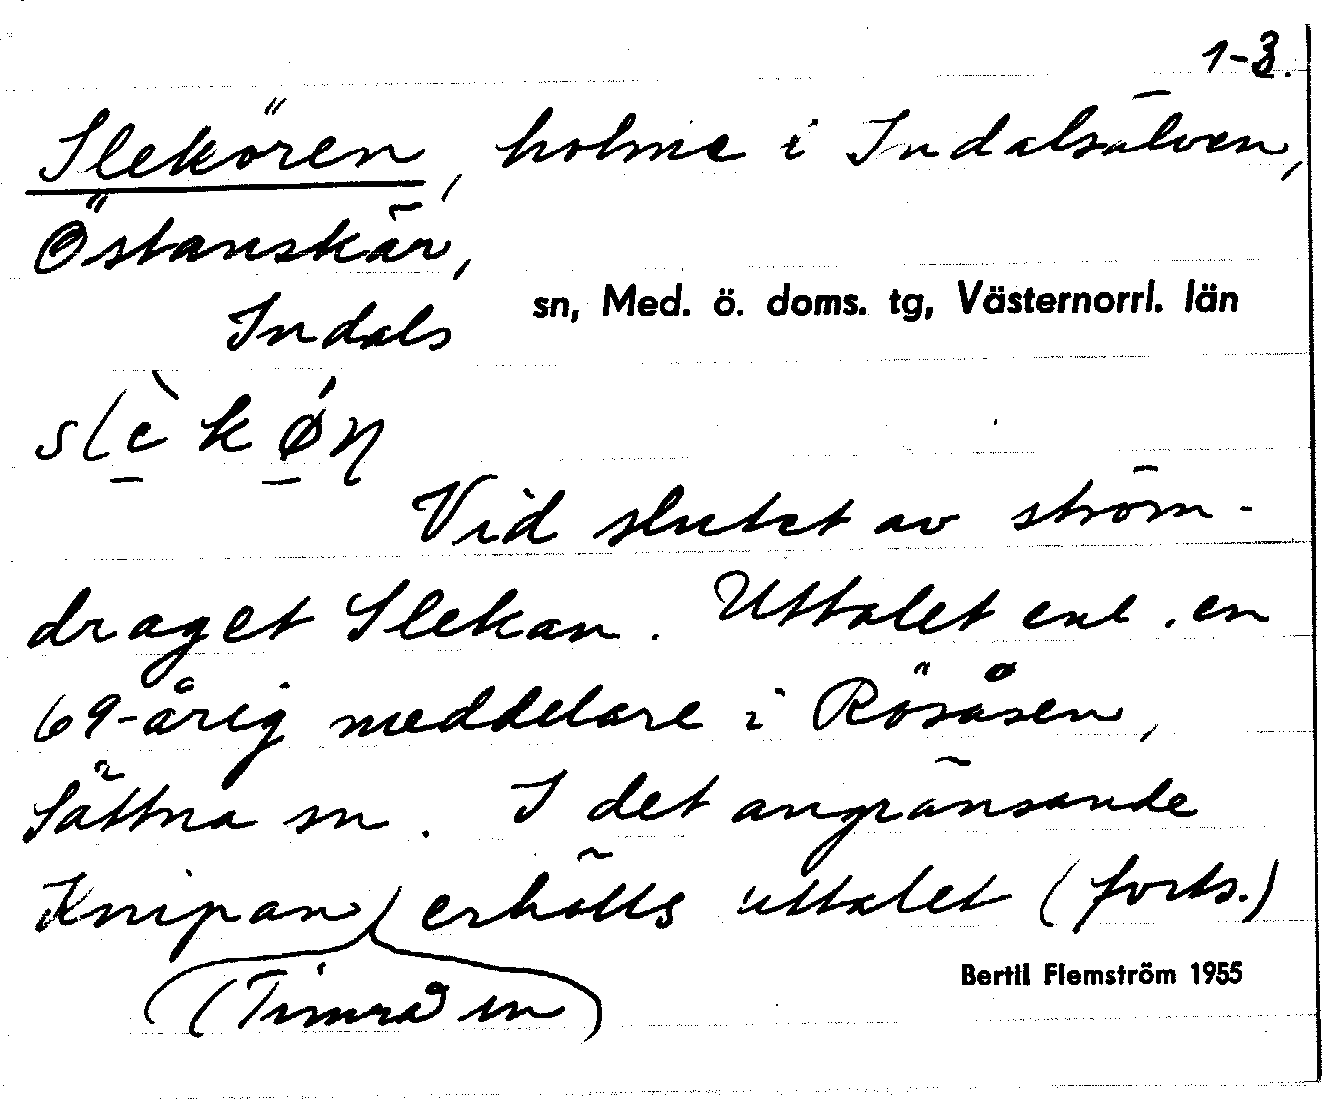 1-3.
Slekören, holme i Indalsälven,
Östanskär,
Indals sn, Med. ö. doms. tg, Västernorrl. län
slèkǿn
Vid slutet av ström-
draget Slekan. Uttalet enl. en
69-årig meddelare i Rösåsen,
Sättna sn. I det angränsande
Knipan (Timrå sn) erhölls uttalet (forts.)
Bertil Flemström 1955